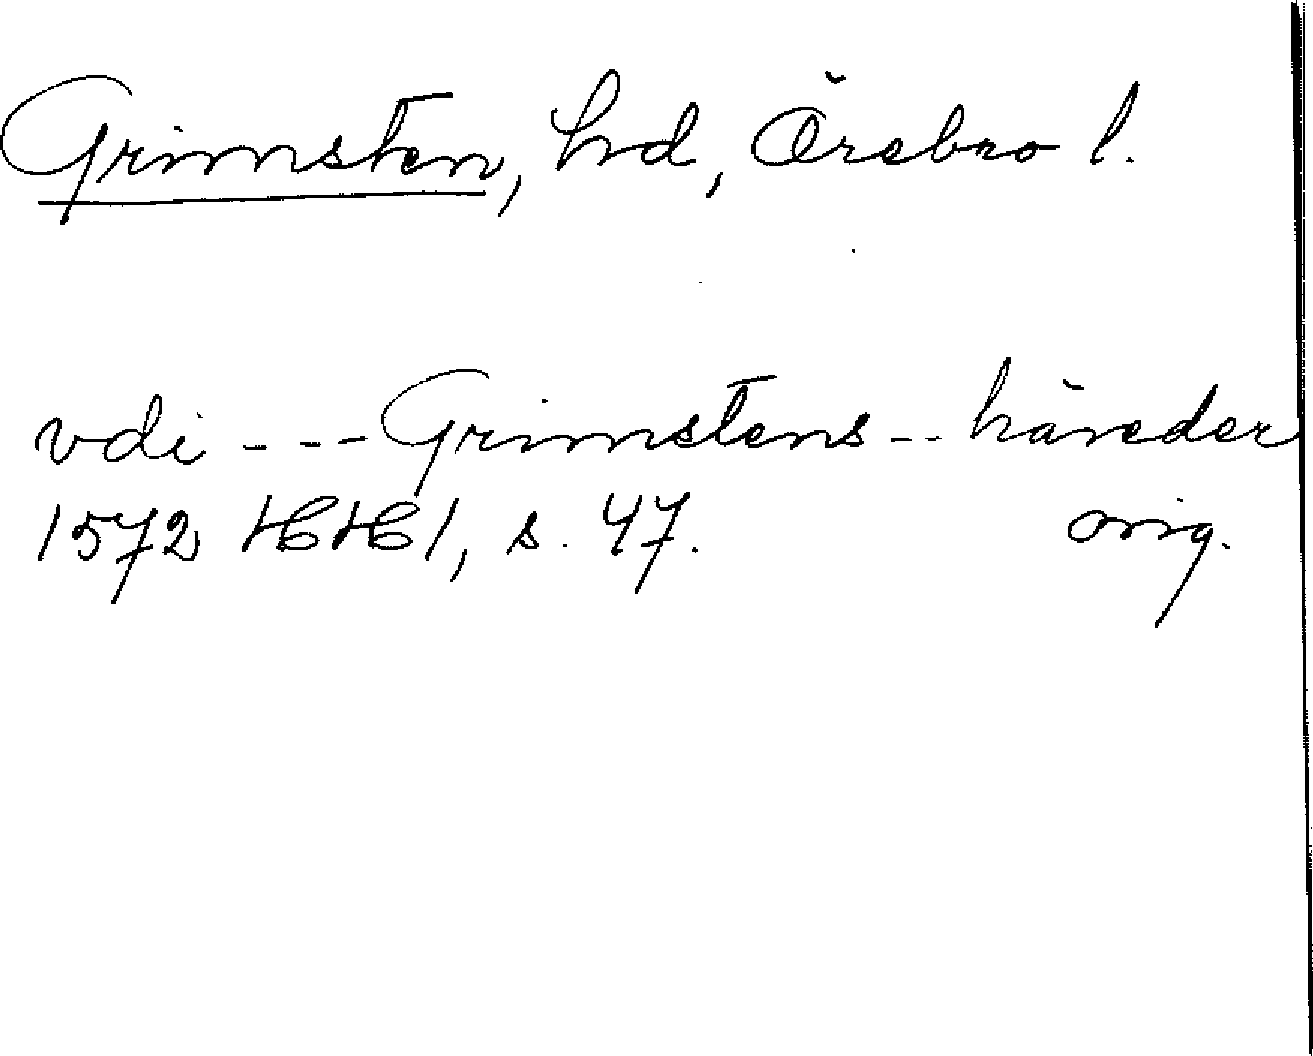 Grimsten, hd, Örebro l.
vdi --- Grimstens -- häreder
1572 HH 1, s. 47. orig.